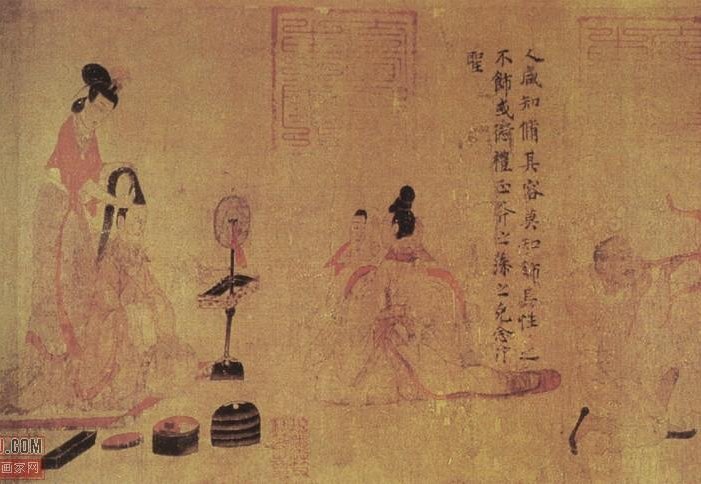 人咸知脩其容莫知飾其性之
不飾或愆禮正斧之藻之克念作
聖
U.COM
画家网